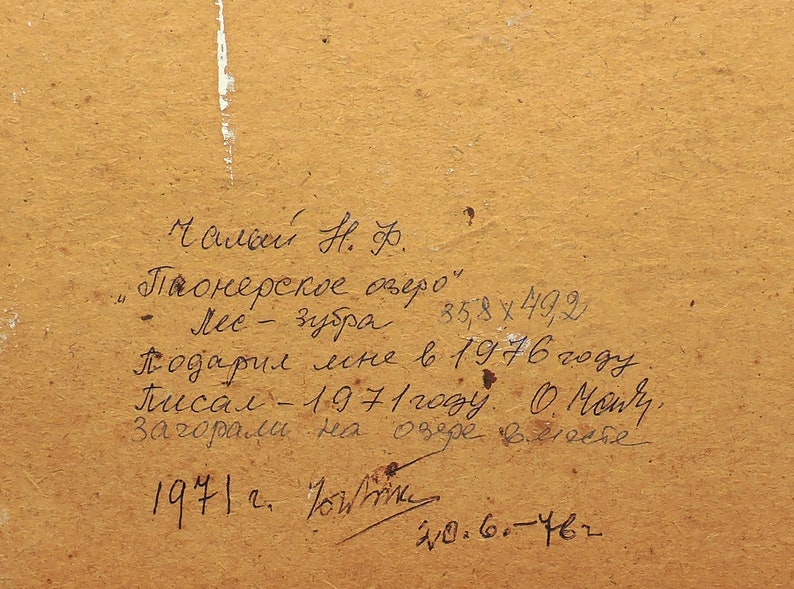 Чалый Н. Ф.
„Пионерское озеро"
Лес – Зубра 35,8 x 49,2
Подарил мне в 1976 году.
Писал – 1971 году. О.
Загорали на озере вместе
1971 г.
20.6.-76 г